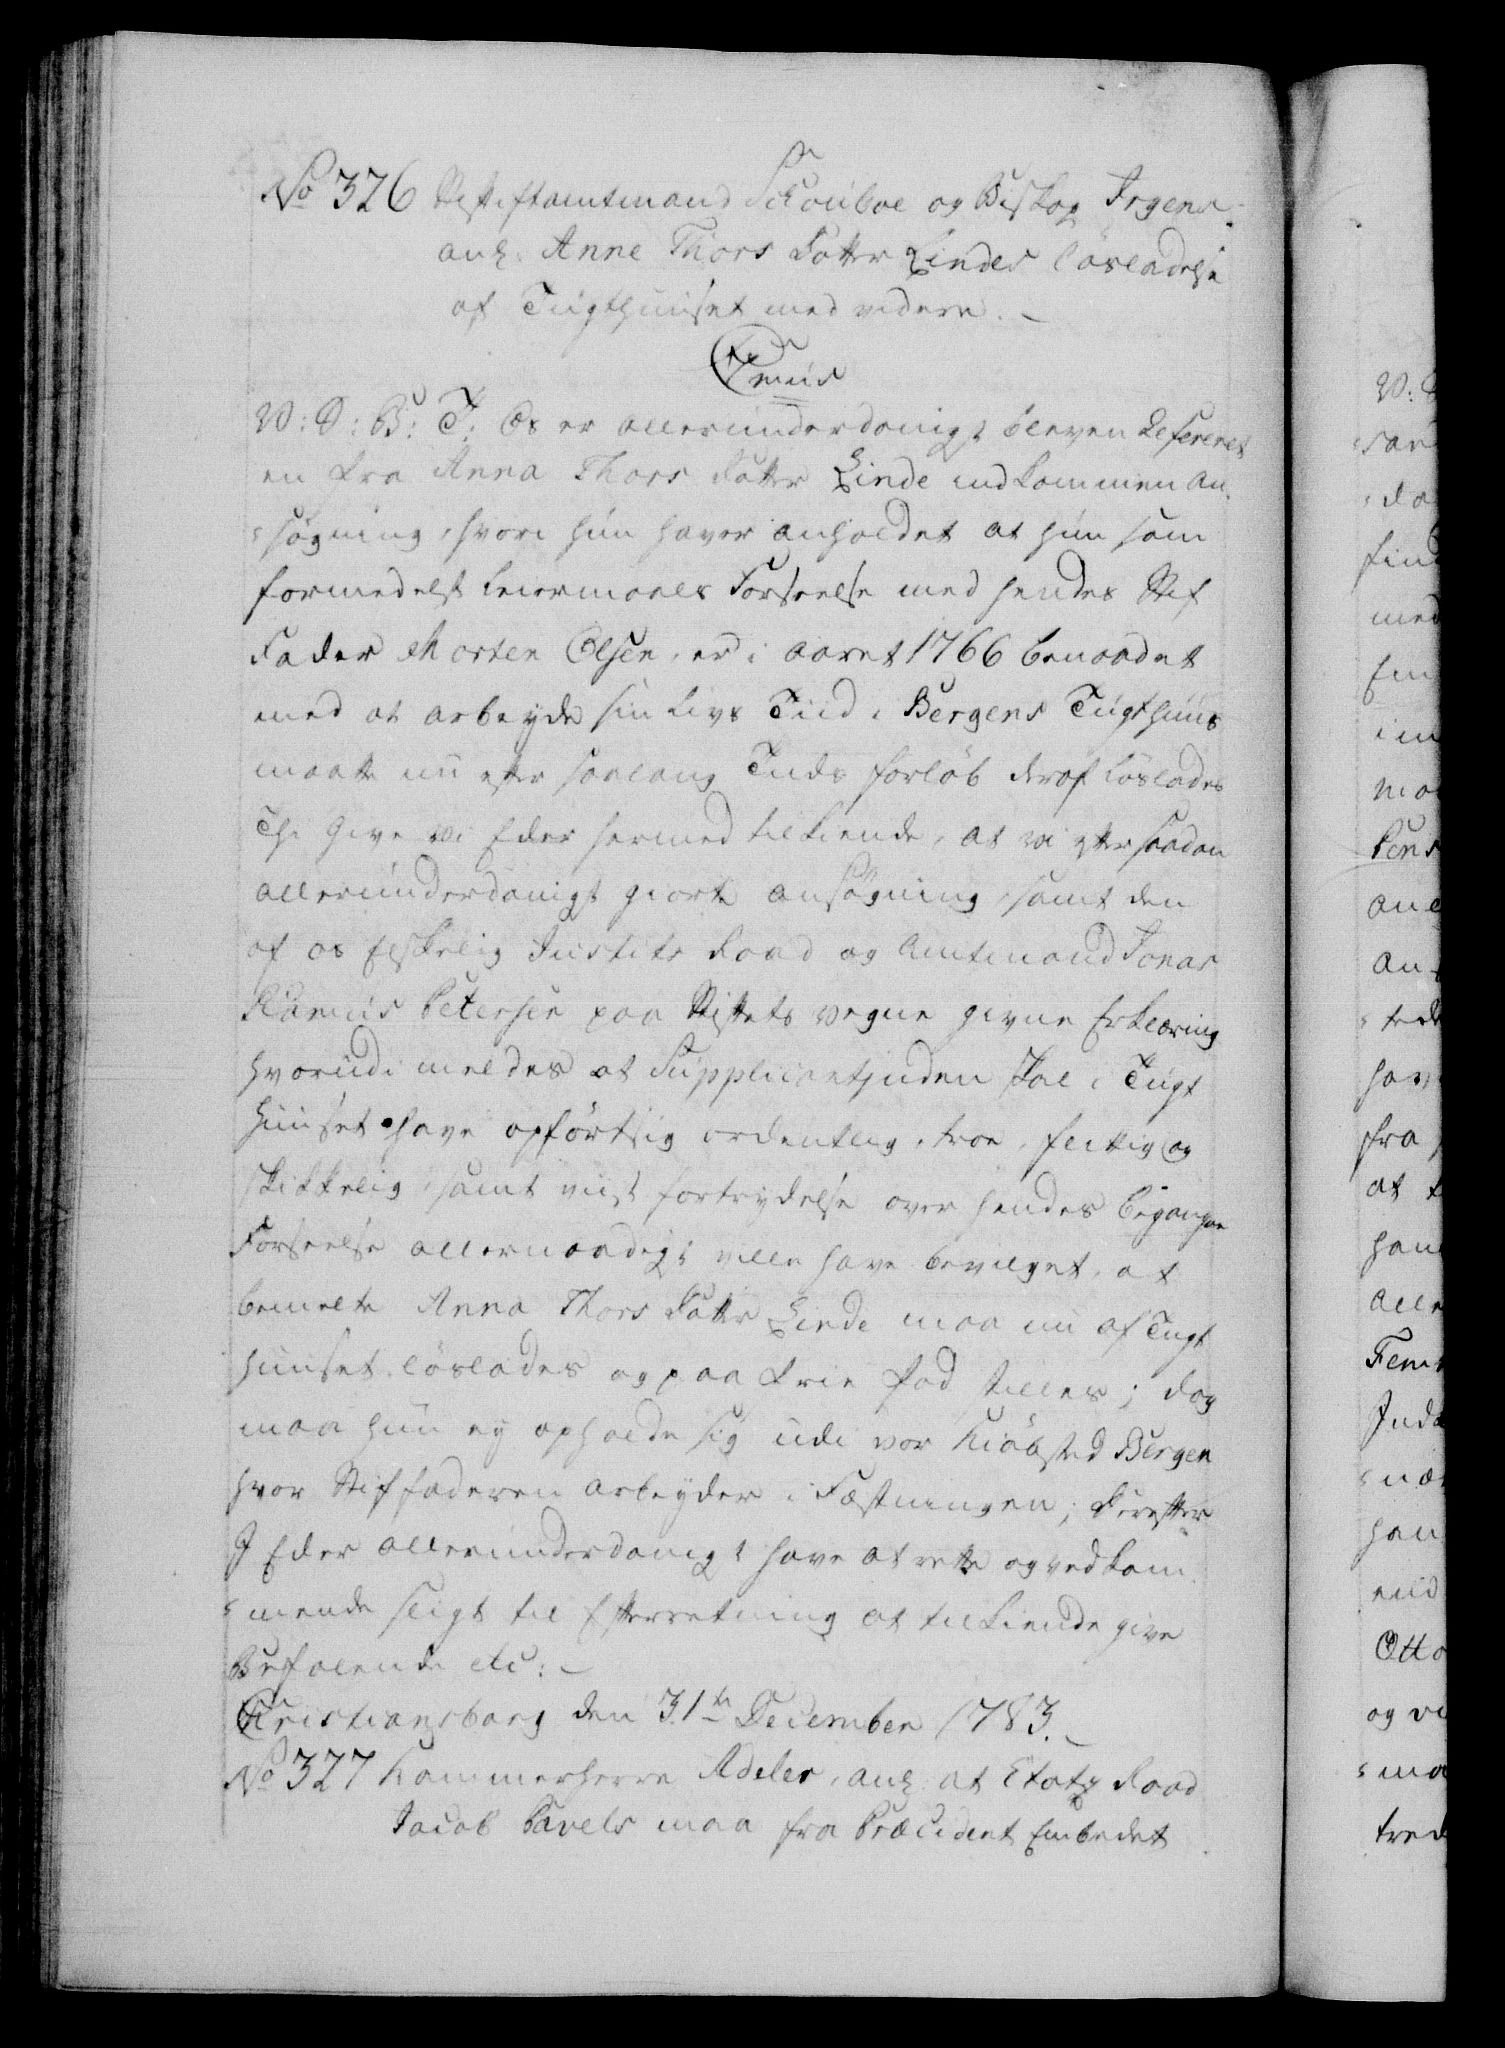 No 326 Stiftamtmand Schouboe og Biskop Irgens
anl: Anne Thors Datter Lindes løsladelse
af Tugthuuset med videre. –
C7mus
V: G: B: T: Os er allerunderdanigst bleven Refereret
en fra Anna Thors Datter Linde indkommen An¬
søgning, hvori hun haver anholdet at hun som
formedelst Leiermaals Forseelse med hendes Stif
Fader Morten Olsen, er i Aaret 1766 benaadet
med at arbeyde sin Livs Tiid i Bergens Tugthuus
maatte nu efter saalang Tids forløb deraf løslades
Thi Give vi Eder hermed tilkiende, at vi efter saadan
allerunderdanigst giorte ansøgning, samt den
af os Elskelig Justits Raad og Amtmand Jonas
Ramus Petersen paa Stiftets vegne givne Erklæring
hvorudi meldes at Supplicantinden skal i Tugt
Huuset have opført sig ordentlig, troe, flittig og
skikkelig, samt viist fortrydelse over hendes begangne
Forseelse allernaadigst ville have bevilget, at
bemelte Anna Thors Datter Linde maa nu af Tugt
huuset løslades og paa frie Fod stilles; dog
maa hun ey opholde sig udi vor Kiøbsted Bergen
hvor Stiffaderen arbeyder i Fæstningen; Derefter
I Eder allerunderdanigst have at rette og vedkom¬
mende sligt til Efterretning at tilkiende give
Befalende etc: –
Christiansborg den 31te December 1783. –
No 327 Kammerherre Adeler, anl: at Etatz Raad
Jacob Pavels maa fra Præcident Embedet